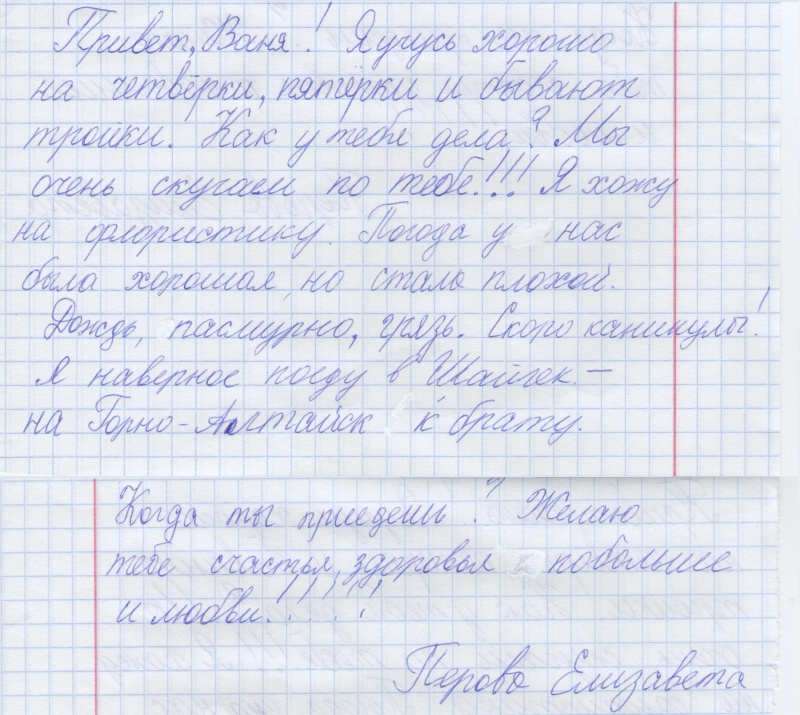 Привет, Ваня! Я учусь хорошо
на четвёрки, пятёрки и бывают
тройки. Как у тебя дела? Мы
очень скучаем по тебе!!! Я хожу
на флористику. Погода у нас
была хорошая, но стала плохой.
Дождь, пасмурно, грязь. Скоро каникулы!
Я наверное поеду в –
на Горно-Алтайск к брату.
Когда ты приедешь? Желаю
тебе счастья, здоровья побольше
и любви!!!!!
Перова Елизавета